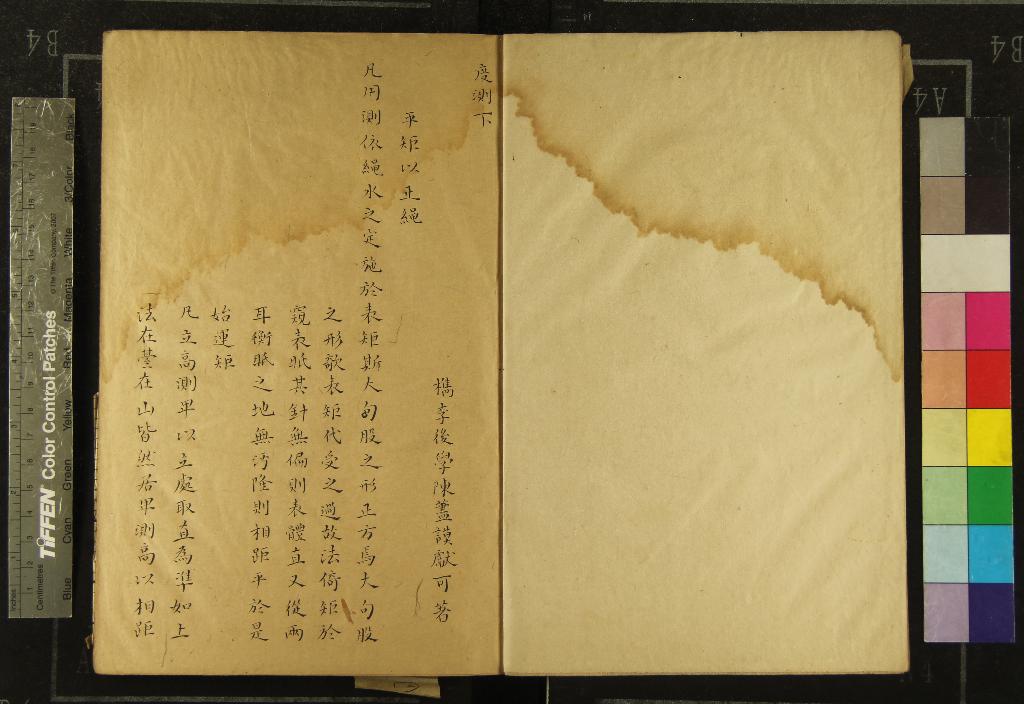 度測下
檇李後學陳藎謨獻可著
平矩以正繩
凡用測依繩水之定施於表矩斯大句股之形正方焉大句股
之形欹表矩代受之過故法倚矩於
窺表眂其針無偏則表體直又從兩
耳衡眂之地無汚隆則相距平於是
始運矩
凡立高測卑以立處取直為準如上
法在臺在山皆然居卑測高以相距
TIFFEN Color Control Patches
© The Tiffen Company, 2007
Inches
Centimetres
Blue
Cyan
Green
Yellow
Red
Magenta
White
3/Color
Black
B4
B4
A4